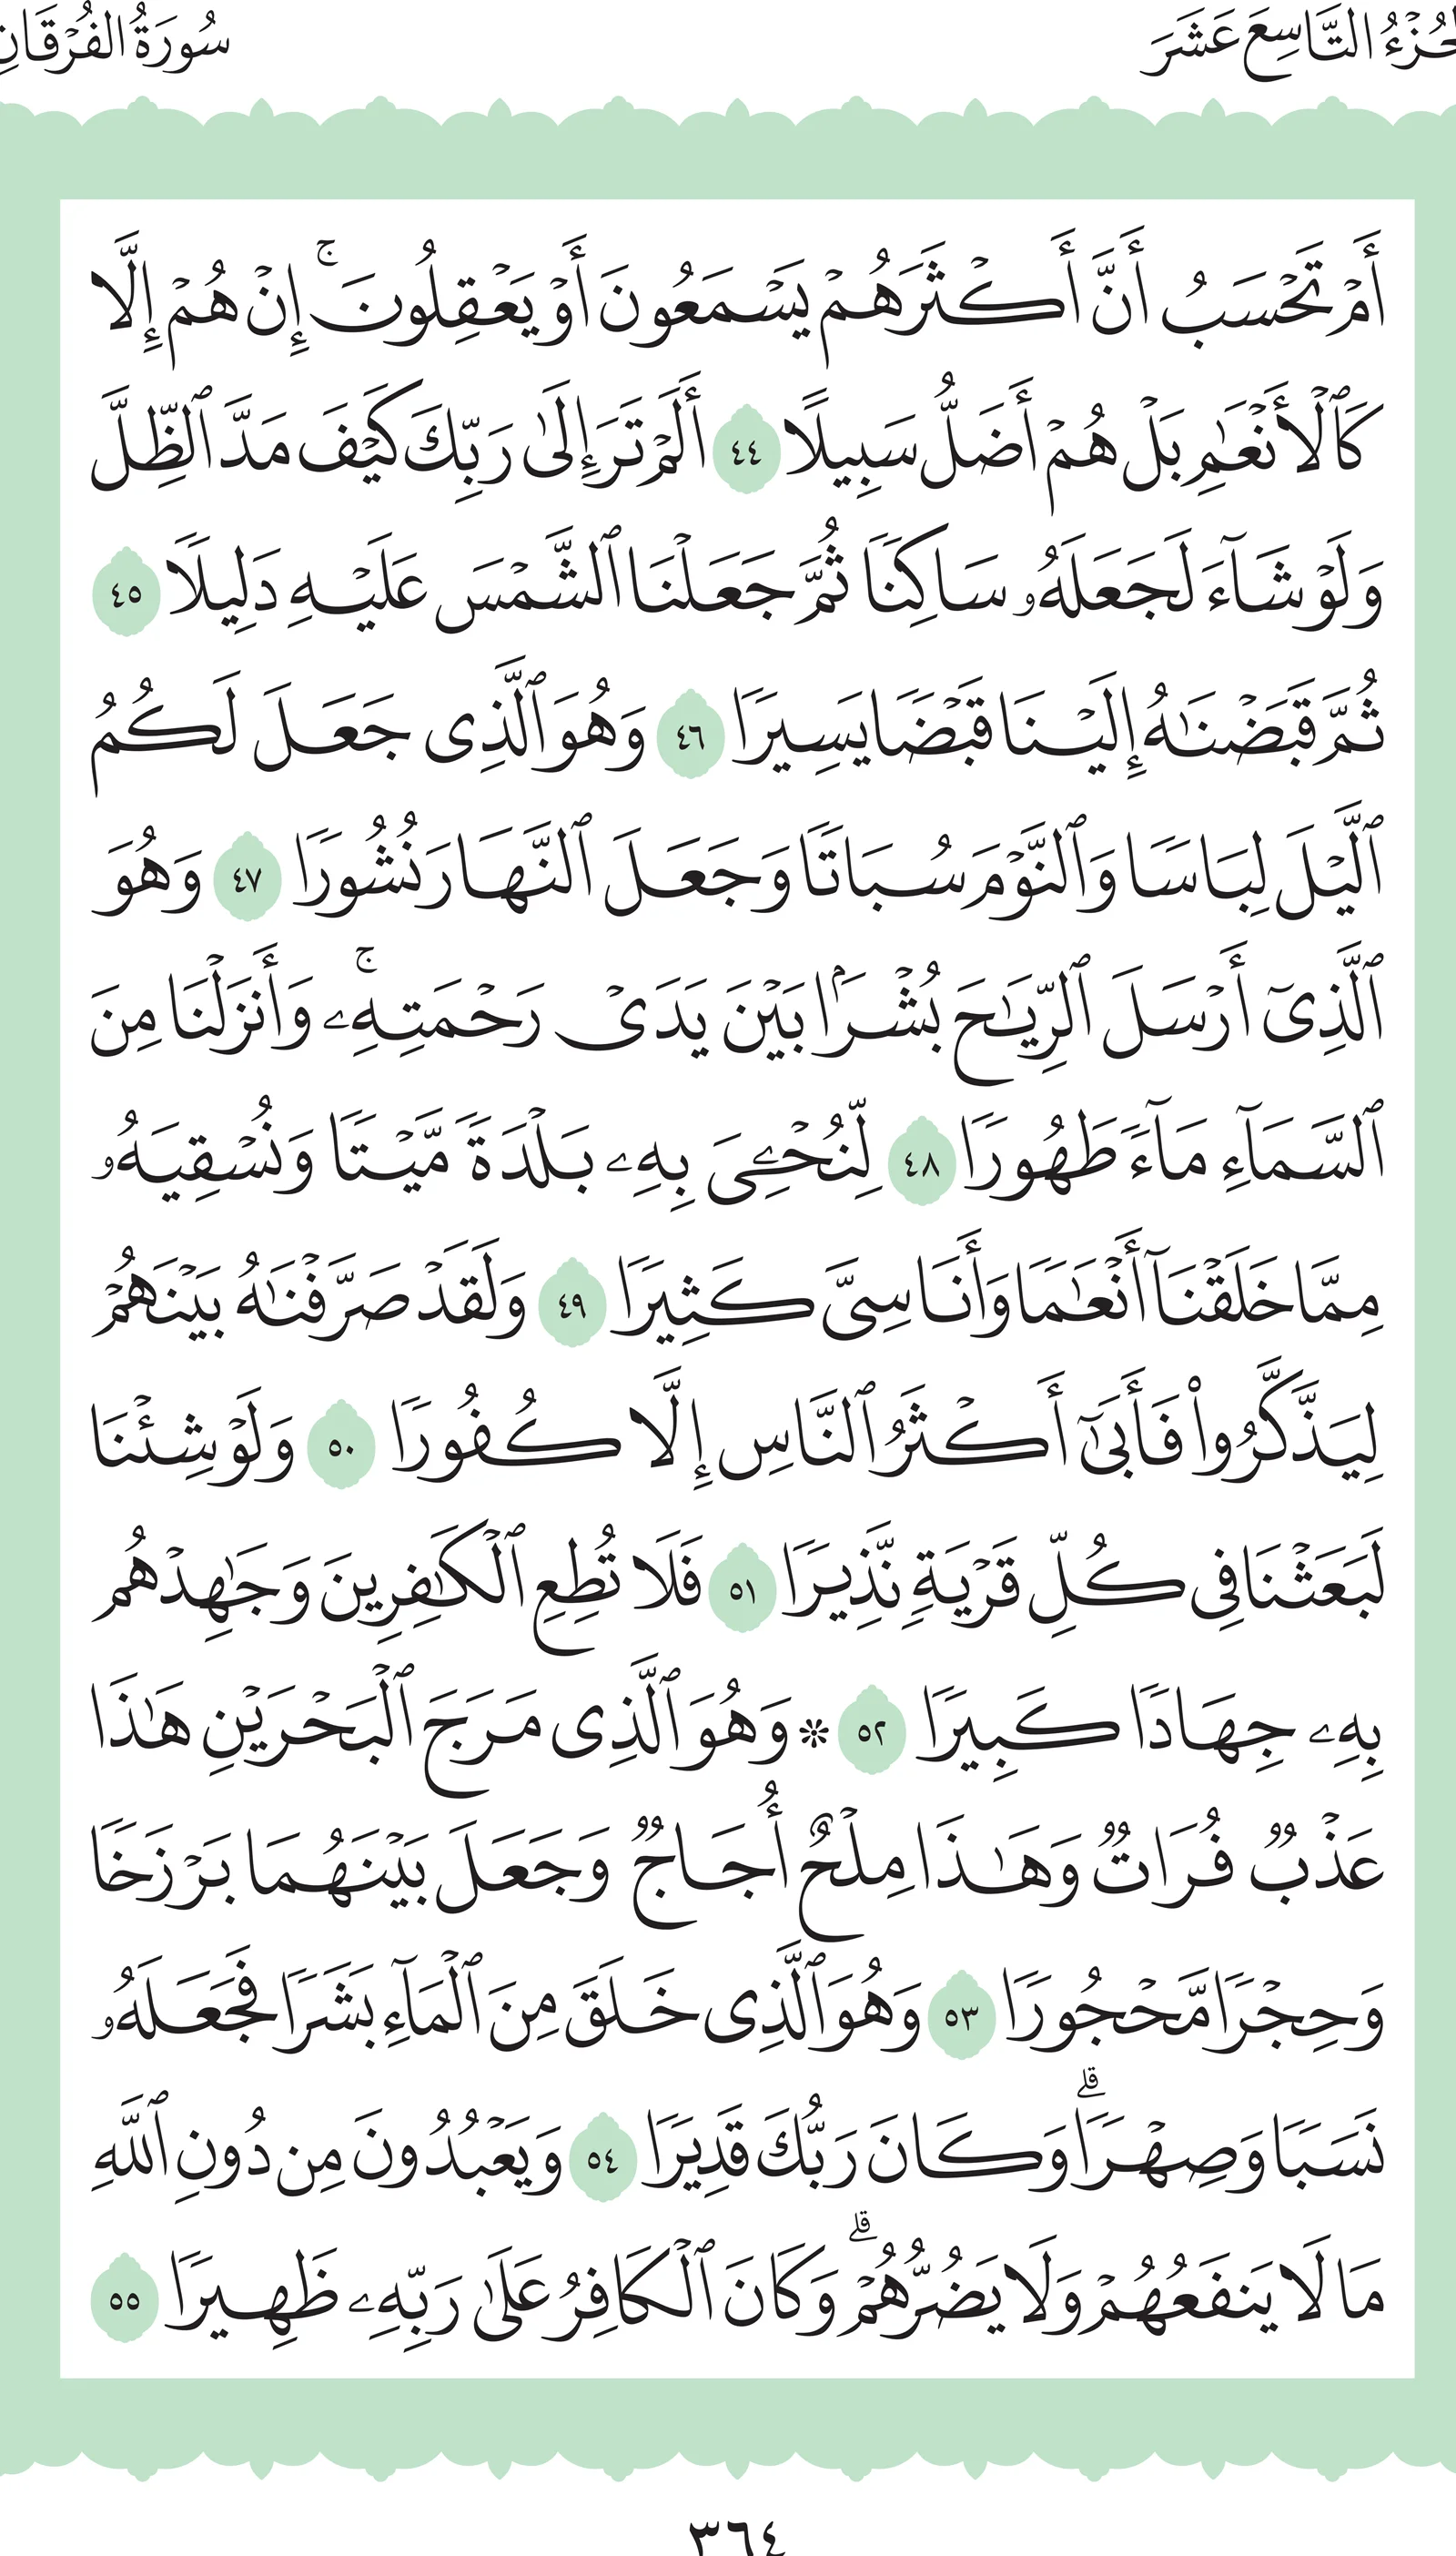 الجُزْءُ التَّاسِعَ عَشَرَ
سُورَةُ الفُرْقَانِ
أَمۡ تَحۡسَبُ أَنَّ أَكۡثَرَهُمۡ يَسۡمَعُونَ أَوۡ يَعۡقِلُونَۚ إِنۡ هُمۡ إِلَّا
كَٱلۡأَنۡعَٰمِ بَلۡ هُمۡ أَضَلُّ سَبِيلًا ٤٤ أَلَمۡ تَرَ إِلَىٰ رَبِّكَ كَيۡفَ مَدَّ ٱلظِّلَّ
وَلَوۡ شَآءَ لَجَعَلَهُۥ سَاكِنٗا ثُمَّ جَعَلۡنَا ٱلشَّمۡسَ عَلَيۡهِ دَلِيلٗا ٤٥
ثُمَّ قَبَضۡنَٰهُ إِلَيۡنَا قَبۡضٗا يَسِيرٗا ٤٦ وَهُوَ ٱلَّذِي جَعَلَ لَكُمُ
ٱلَّيۡلَ لِبَاسٗا وَٱلنَّوۡمَ سُبَاتٗا وَجَعَلَ ٱلنَّهَارَ نُشُورٗا ٤٧ وَهُوَ
ٱلَّذِيٓ أَرۡسَلَ ٱلرِّيَٰحَ بُشۡرَۢا بَيۡنَ يَدَيۡ رَحۡمَتِهِۦۚ وَأَنزَلۡنَا مِنَ
ٱلسَّمَآءِ مَآءٗ طَهُورٗا ٤٨ لِّنُحۡـِۧيَ بِهِۦ بَلۡدَةٗ مَّيۡتٗا وَنُسۡقِيَهُۥ
مِمَّا خَلَقۡنَآ أَنۡعَٰمٗا وَأَنَاسِيَّ كَثِيرٗا ٤٩ وَلَقَدۡ صَرَّفۡنَٰهُ بَيۡنَهُمۡ
لِيَذَّكَّرُواْ فَأَبَىٰٓ أَكۡثَرُ ٱلنَّاسِ إِلَّا كُفُورٗا ٥٠ وَلَوۡ شِئۡنَا
لَبَعَثۡنَا فِي كُلِّ قَرۡيَةٖ نَّذِيرٗا ٥١ فَلَا تُطِعِ ٱلۡكَٰفِرِينَ وَجَٰهِدۡهُم
بِهِۦ جِهَادٗا كَبِيرٗا ٥٢ ۞ وَهُوَ ٱلَّذِي مَرَجَ ٱلۡبَحۡرَيۡنِ هَٰذَا
عَذۡبٞ فُرَاتٞ وَهَٰذَا مِلۡحٌ أُجَاجٞ وَجَعَلَ بَيۡنَهُمَا بَرۡزَخٗا
وَحِجۡرٗا مَّحۡجُورٗا ٥٣ وَهُوَ ٱلَّذِي خَلَقَ مِنَ ٱلۡمَآءِ بَشَرٗا فَجَعَلَهُۥ
نَسَبٗا وَصِهۡرٗاۗ وَكَانَ رَبُّكَ قَدِيرٗا ٥٤ وَيَعۡبُدُونَ مِن دُونِ ٱللَّهِ
مَا لَا يَنفَعُهُمۡ وَلَا يَضُرُّهُمۡۗ وَكَانَ ٱلۡكَافِرُ عَلَىٰ رَبِّهِۦ ظَهِيرٗا ٥٥
٣٦٤